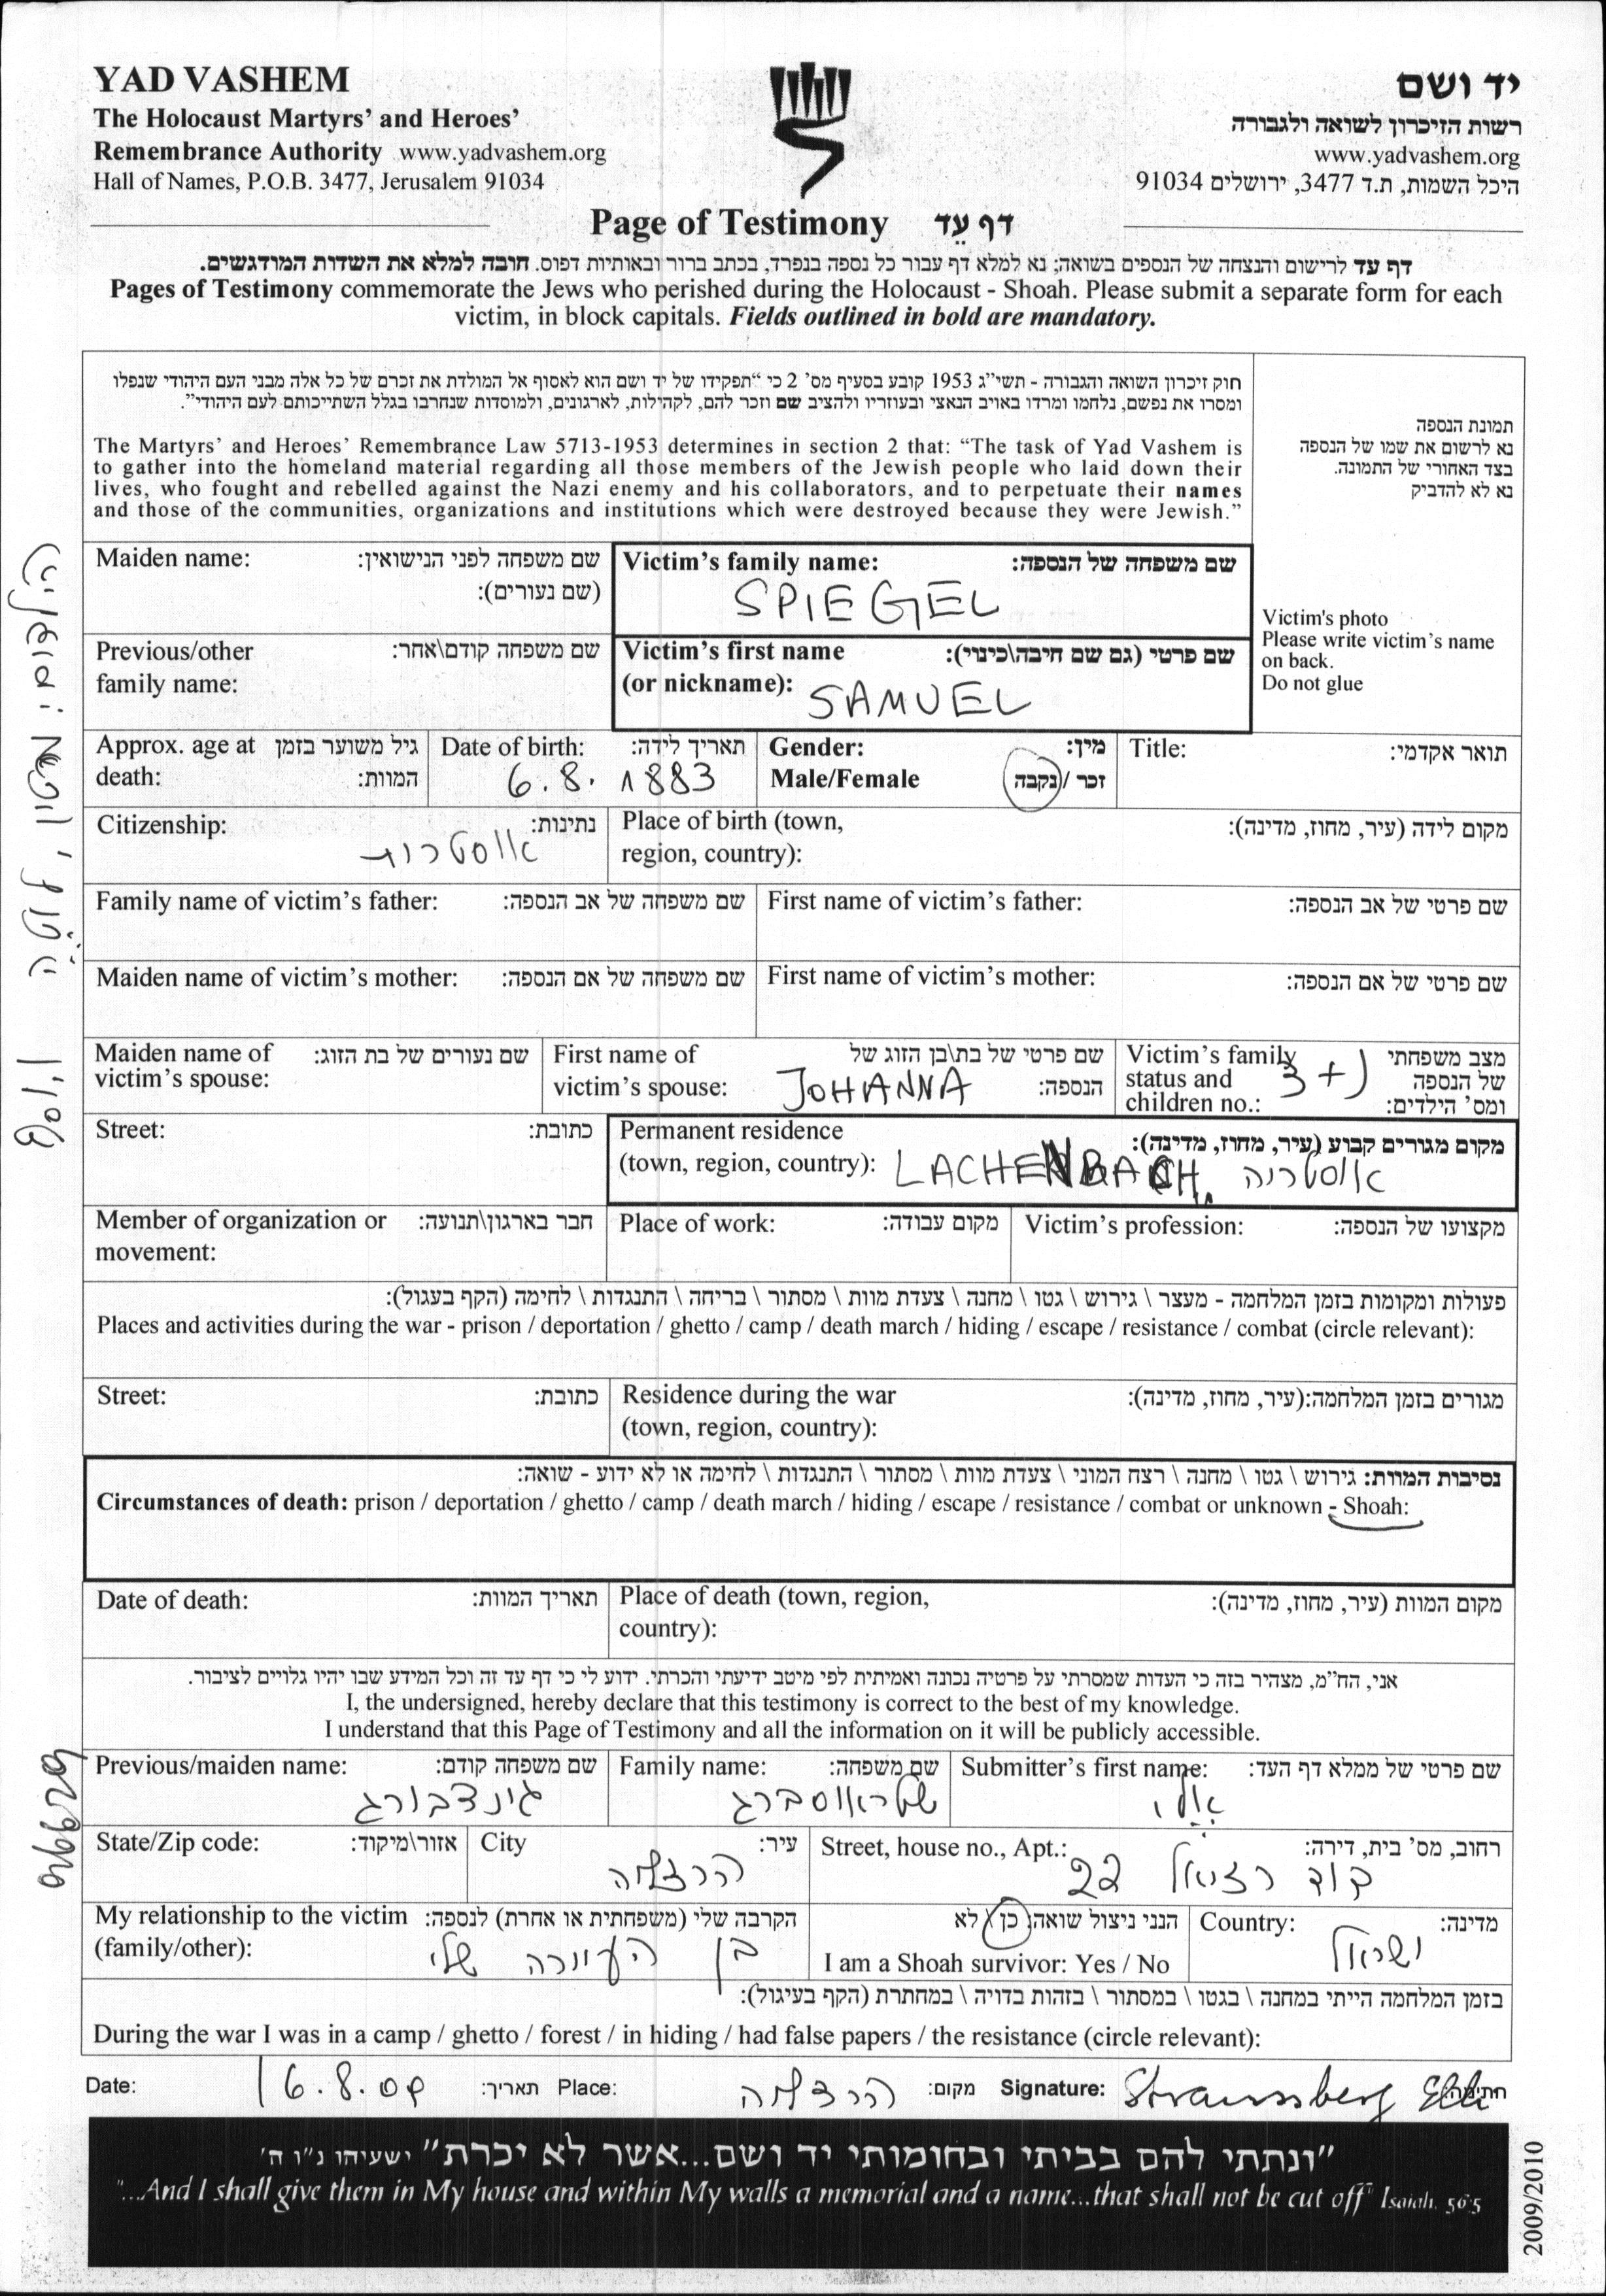 YAD VASHEM
The Holocaust Martyrs' and Heroes'
Remembrance Authority www.yadvashem.org
Hall of Names, P.O.B. 3477, Jerusalem 91034
יד ושם
רשות הזיכרון לשואה ולגבורה
www.yadvashem.org
היכל השמות, ת.ד 3477, ירושלים 91034
Page of Testimony דף עֵד
דף עד לרישום והנצחה של הנספים בשואה; נא למלא דף עבור כל נספה בנפרד, בכתב ברור ובאותיות דפוס. חובה למלא את השדות המודגשים.
Pages of Testimony commemorate the Jews who perished during the Holocaust - Shoah. Please submit a separate form for each
victim, in block capitals. Fields outlined in bold are mandatory.
חוק זיכרון השואה והגבורה - תשי"ג 1953 קובע בסעיף מס' 2 כי "תפקידו של יד ושם הוא לאסוף אל המולדת את זכרם של כל אלה מבני העם היהודי שנפלו
ומסרו את נפשם, נלחמו ומרדו באויב הנאצי ובעוזריו ולהציב שם וזכר להם, לקהילות, לארגונים, ולמוסדות שנחרבו בגלל השתייכותם לעם היהודי".
The Martyrs' and Heroes' Remembrance Law 5713-1953 determines in section 2 that: "The task of Yad Vashem is
to gather into the homeland material regarding all those members of the Jewish people who laid down their
lives, who fought and rebelled against the Nazi enemy and his collaborators, and to perpetuate their names
and those of the communities, organizations and institutions which were destroyed because they were Jewish."
תמונת הנספה
נא לרשום את שמו של הנספה
בצד האחורי של התמונה.
נא לא להדביק
Victim's photo
Please write victim's name
on back.
Do not glue
Maiden name: שם משפחה לפני הנישואין:
(שם נעורים):
Victim's family name: שם משפחה של הנספה:
SPIEGEL
Previous/other שם משפחה קודם\אחר:
family name:
Victim's first name שם פרטי (גם שם חיבה\כינוי):
(or nickname): SAMUEL
Approx. age at גיל משוער בזמן
death: המוות:
Date of birth: תאריך לידה:
6.8. 1883
Gender: מין:
Male/Female זכר / נקבה
Title: תואר אקדמי:
Citizenship: נתינות:
אוסטרית
Place of birth (town, מקום לידה (עיר, מחוז, מדינה):
region, country):
Family name of victim's father: שם משפחה של אב הנספה:
First name of victim's father: שם פרטי של אב הנספה:
Maiden name of victim's mother: שם משפחה של אם הנספה:
First name of victim's mother: שם פרטי של אם הנספה:
Maiden name of שם נעורים של בת הזוג:
victim's spouse:
First name of שם פרטי של בת\בן הזוג של
victim's spouse: JOHANNA הנספה:
Victim's family מצב משפחתי
status and 3 + נ של הנספה
children no.: ומס' הילדים:
Street: כתובת:
Permanent residence מקום מגורים קבוע (עיר, מחוז, מדינה):
(town, region, country): LACHENBACH, אוסטריה
Member of organization or חבר בארגון\תנועה:
movement:
Place of work: מקום עבודה:
Victim's profession: מקצועו של הנספה:
פעולות ומקומות בזמן המלחמה - מעצר \ גירוש \ גטו \ מחנה \ צעדת מוות \ מסתור \ בריחה \ התנגדות \ לחימה (הקף בעגול):
Places and activities during the war - prison / deportation / ghetto / camp / death march / hiding / escape / resistance / combat (circle relevant):
Street: כתובת:
Residence during the war מגורים בזמן המלחמה:(עיר, מחוז, מדינה):
(town, region, country):
נסיבות המוות: גירוש \ גטו \ מחנה \ רצח המוני \ צעדת מוות \ מסתור \ התנגדות \ לחימה או לא ידוע - שואה:
Circumstances of death: prison / deportation / ghetto / camp / death march / hiding / escape / resistance / combat or unknown - Shoah:
Date of death: תאריך המוות:
Place of death (town, region, מקום המוות (עיר, מחוז, מדינה):
country):
אני, הח"מ, מצהיר בזה כי העדות שמסרתי על פרטיה נכונה ואמיתית לפי מיטב ידיעתי והכרתי. ידוע לי כי דף עד זה וכל המידע שבו יהיו גלויים לציבור.
I, the undersigned, hereby declare that this testimony is correct to the best of my knowledge.
I understand that this Page of Testimony and all the information on it will be publicly accessible.
Previous/maiden name: שם משפחה קודם:
גינצבורג
Family name: שם משפחה:
שטראוסברג
Submitter's first name: שם פרטי של ממלא דף העד:
אלי
State/Zip code: אזור\מיקוד:
City עיר:
הרצליה
Street, house no., Apt.: רחוב, מס' בית, דירה:
דוד רזיאל 22
My relationship to the victim הקרבה שלי (משפחתית או אחרת) לנספה:
(family/other): בן שלי
הנני ניצול שואה: כן \ לא
I am a Shoah survivor: Yes / No
Country: מדינה:
ישראל
בזמן המלחמה הייתי במחנה \ בגטו \ במסתור \ בזהות בדויה \ במחתרת (הקף בעיגול):
During the war I was in a camp / ghetto / forest / in hiding / had false papers / the resistance (circle relevant):
Date: 16.8.09 תאריך: Place: הרצליה מקום: Signature: Straussberg Elli חתימה:
"ונתתי להם בביתי ובחומותי יד ושם...אשר לא יכרת" ישעיהו נ"ו ה'
"...And I shall give them in My house and within My walls a memorial and a name...that shall not be cut off" Isaiah, 56:5
2009/2010